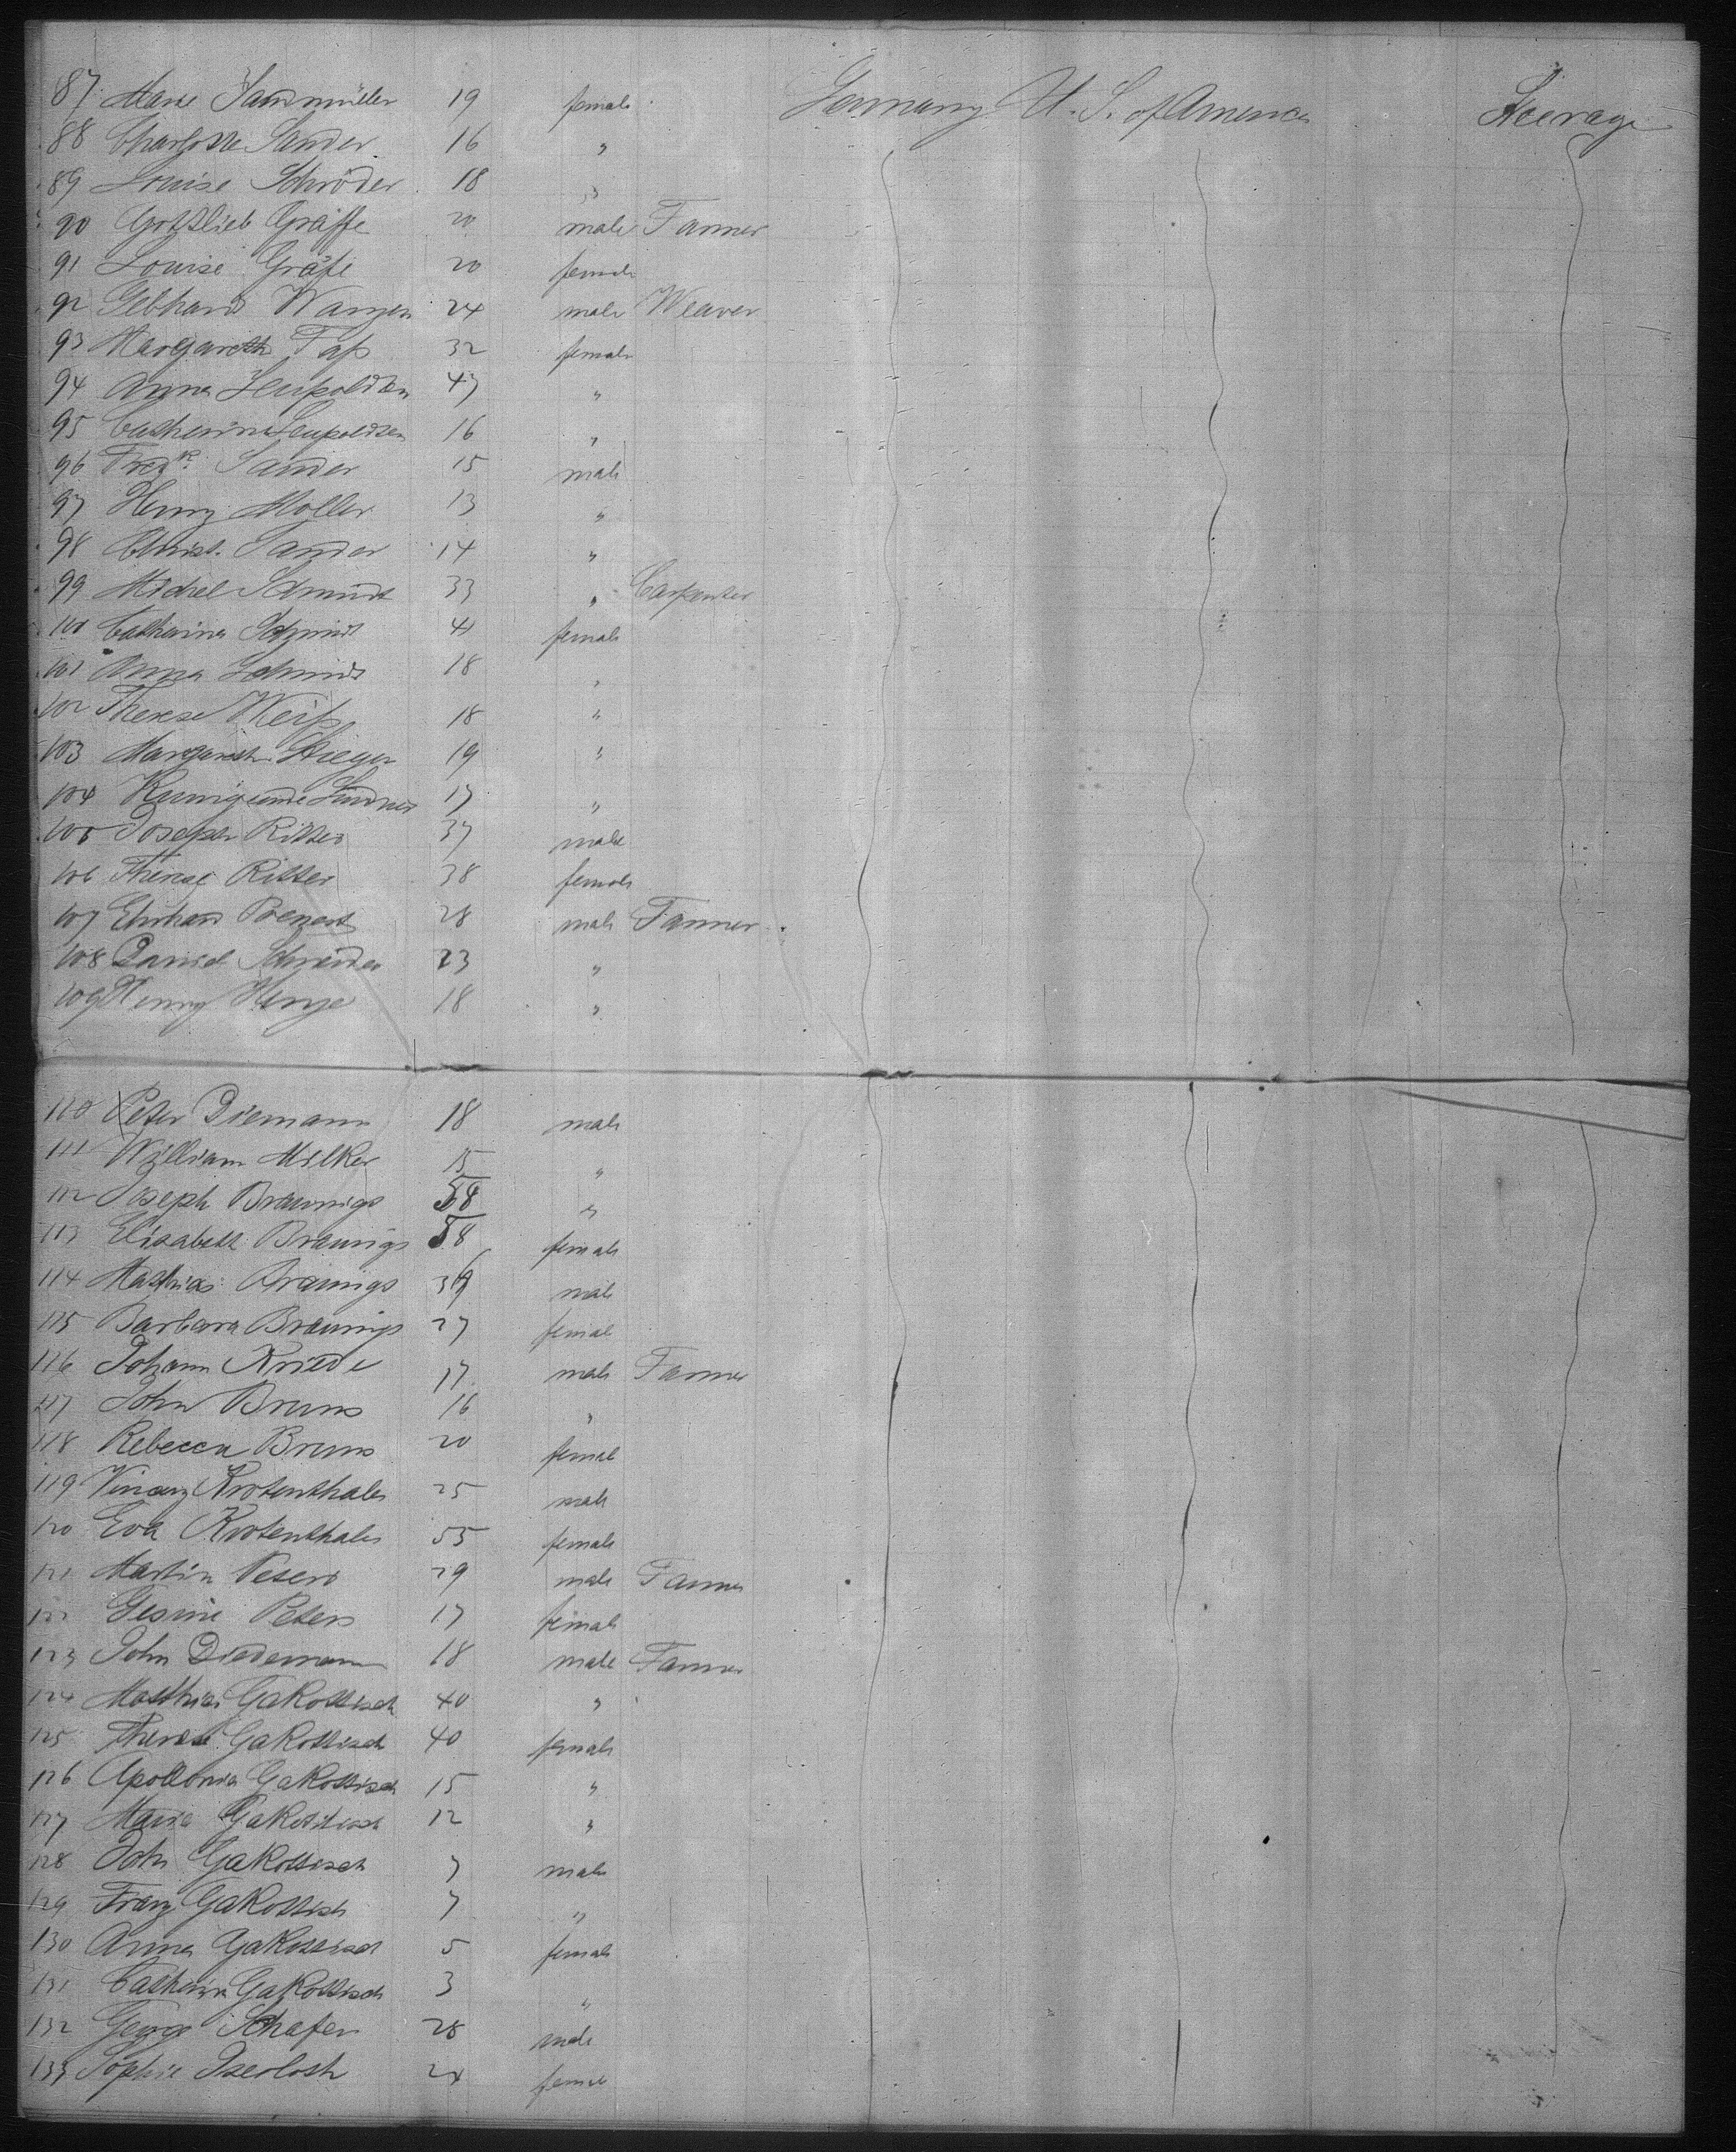 87 Marie Sandmüller 19 female Germany U. S. of America Steerage
88 Charlotte Sander 16 "
89 Louise Schröder 18 "
90 Gottlieb Gräffe 20 male Farmer
91 Louise Gräfe 20 female
92 Gebhard Wangen 24 male Weaver
93 Margareth 32 female
94 Anna Leupoldsen 47 "
95 Catherina Leupoldsen 16 "
96 Fredk. Sander 15 male
97 Henry Moller 13 "
98 Christ. Sander 14 "
99 Michel Schmidt 33 " Carpenter
100 Catharina Schmidt female
101 Anna Schmidt 18 "
102 Therese Weiss 18 "
103 Margareth Stieger 19 "
104 Kunigunde Lindner 17 "
105 Joseph Ritter 37 male
106 Therese Ritter 38 female
107 Ehrhard 28 male Farmer
108 Daniel Schneider 23 "
109 Henry Henze 18 "
110 Peter Diemann 18 male
111 William Milker 15 "
112 Joseph Braunigs 58 "
113 Elisabeth Braunigs 58 female
114 Mathias Braunigs male
115 Barbara Braunigs 27 female
116 Johann Kriede 17 male Farmer
117 John Bruns 16 "
118 Rebecca Bruns 20 female
119 Vincenz Krotenthaler 25 male
120 Eva Krotenthaler 55 female
121 Martin 29 male Farmer
122 Gesine Peters 17 female
123 John Diedemann 18 male Farmer
124 Matthias Gakottisch 40 "
125 Therese Gakottisch 40 female
126 Apollonia Gakottisch 15 "
127 Maria Gakottisch 12 "
128 John Gakottisch 7 male
129 Franz Gakottisch 7 "
130 Anna Gakottisch 5 female
131 Catherina Gakottisch 3 "
132 George Schafer 28 male
133 Sophie Iserloth 24 female